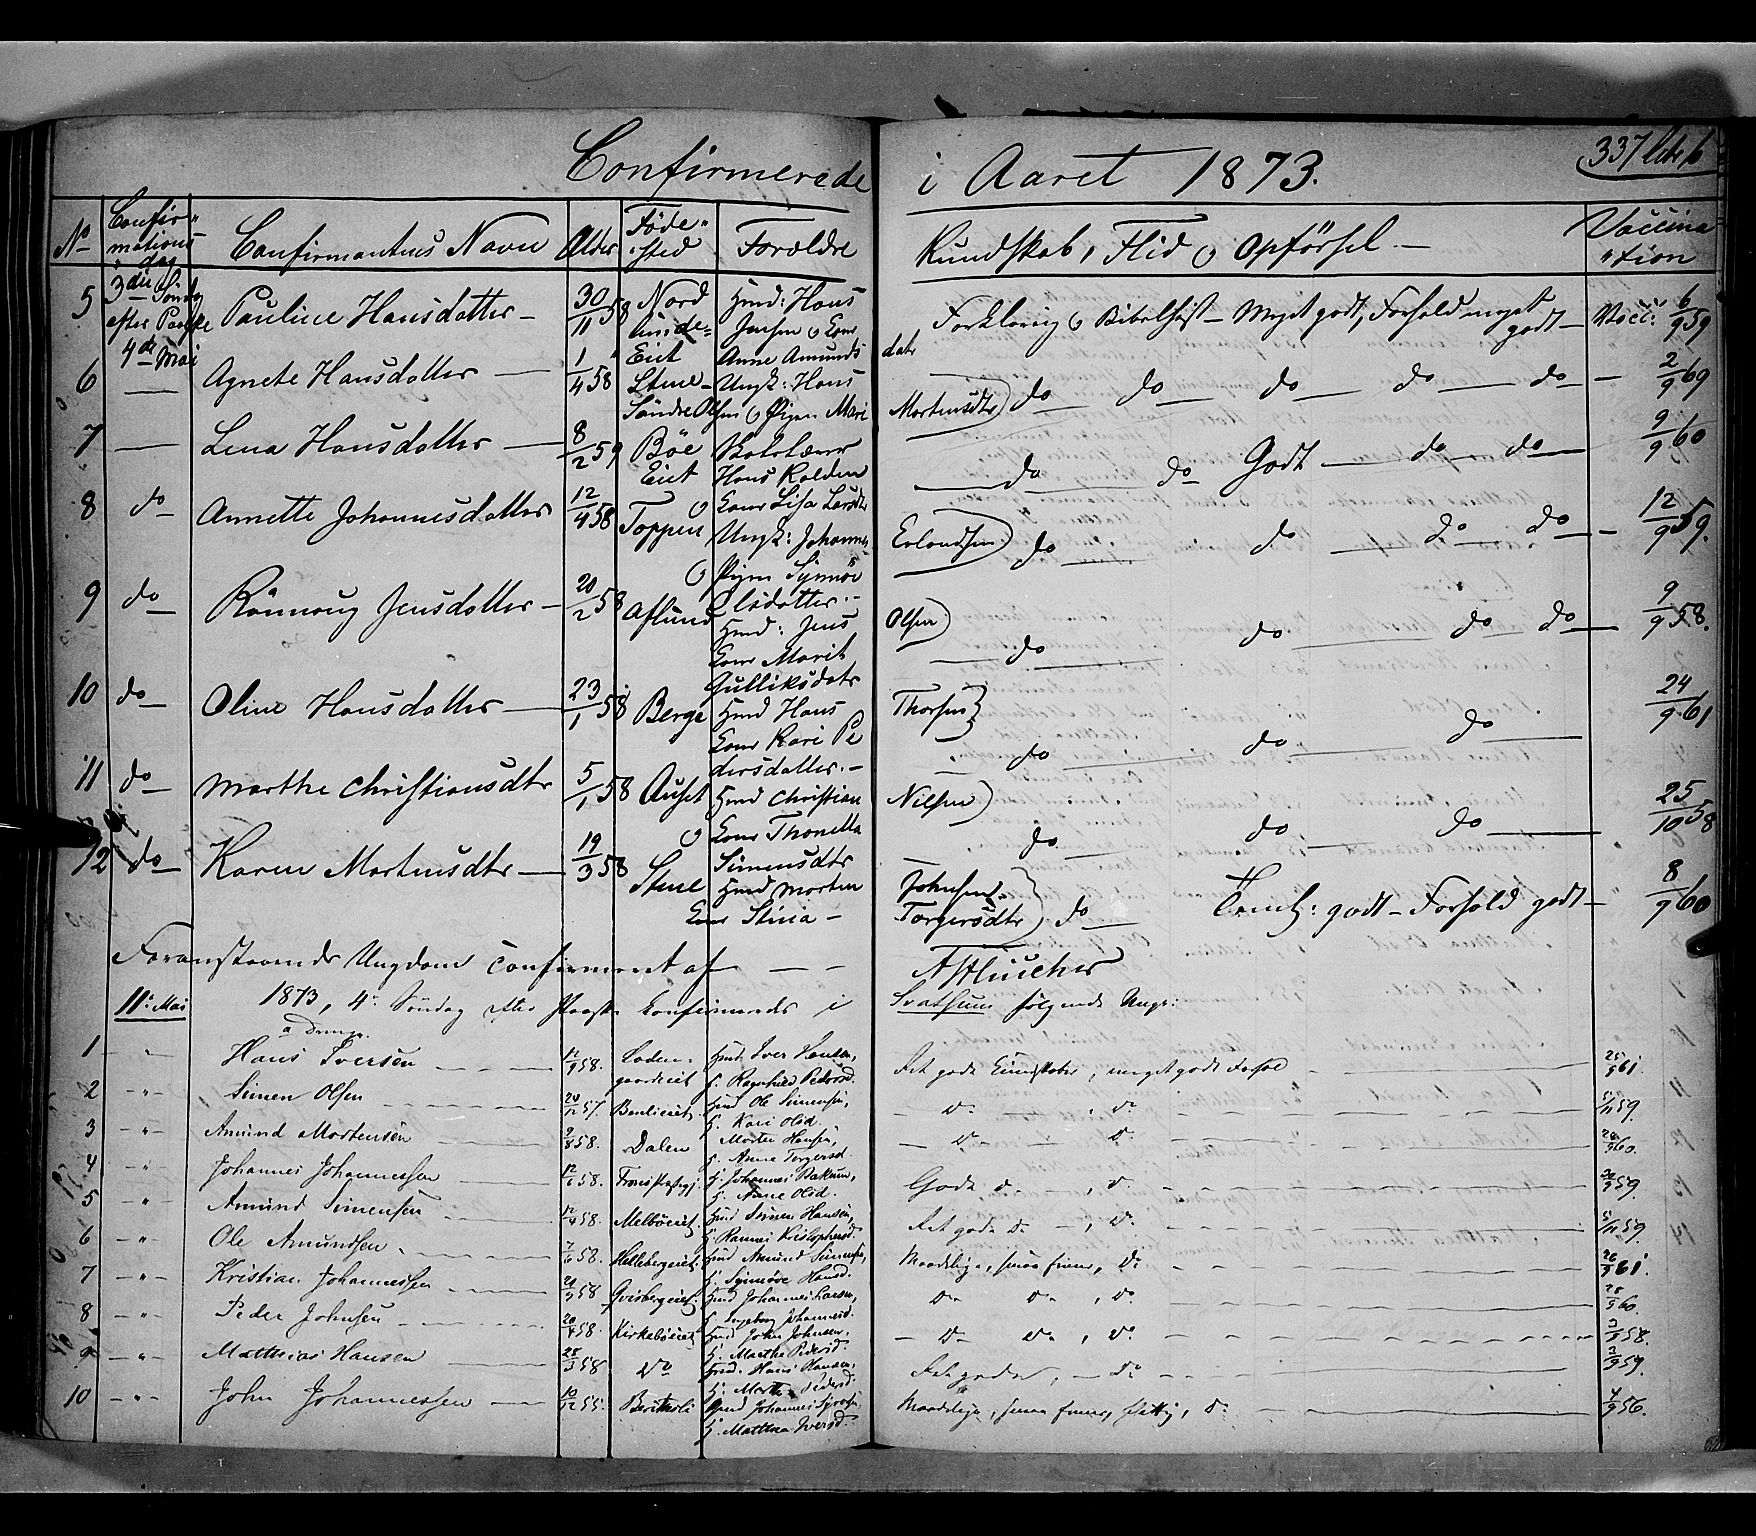 Confirmerede i Aaret 1873.
337 
No Confirmationsdag Confirmantens Navn Alder Födested Forældre Kundskab, Flid & Opförsel.— Vaccination
5 3die Söndag efter Paaske 4de Mai Pauline Hansdatter — 30/11 58 Nord Hmd: Hans Jensen & Kone Anne Amundsdatr Forklaring & Bibelhist— Meget godt, Forhold meget godt— Vacc: 6/9 59
6 — Agnete Hansdatter — 1/4 58 Eiet Stene Söndre Ungk: Hans Olsen & Pigen Mari Mortensdtr) do do do do do — 2/9 69
7 — Lena Hansdatter — 8/2 59 Böe Eiet Skolelærer Hans Kolden & Kone Lisa Larsdtr do do Godt do do 9/9 60
8 do Annette Johannesdatter 12/4 58 Toppen Ungk: Johannes Erlandsen) & Pigen Synnöv Olsdatter.— do do do do — 12/9 59.
9 do Rönnoug Jensdatter — 20/2 58 Aslund Hmd: Jens Olsen) Kone Marit Gulliksdatr do do do do 9/9 58.
10 do Oline Hansdatter — 23/1 58 Berge Hmd Hans Thorsen} Kone Kari Pedersdatter.— do do do 24/9 61
11 do Marthe Christiansdtr 5/1 58 Auset Hmd Christian Nilsen) & Kone Thonetta Simensdtr do do do 25/10 58
12 do Karen Mortensdtr — 19/3 58 Stene Hmd Morten Johnsen Kone Stina — Torgersdtr) do godt — Forhold godt — 8/9 60
Foranstaaende Ungdom confirmeret af — —
11te Mai 1873, 4de Söndag efter Paaske konfirmeredes i Svatsum følgende Unge:
a Drenge
1 Hans Iversen 58. Ladengaardeiet Hmd Iver Hansen, K. Ragnhild Pedersd. Ret gode Kundskaber, meget godt Forhold 25/9 61.
2 Simen Olsen 57. Hmd Ole Simensen, K. Kari Olsd. Do , Do 59.
3 Amund Mortensen 9/8 58. Dalen Morten Hansen, K. Anne Torgersd. Do Do 60.
4 Johannes Johannessen 12/ 58. H. Johannes Bakum, K. Anne Olsd. Gode do , Do 59.
5 Amund Simensen 12/4 58. Melböeiet Hmd Simen Hansen, K. Rannei Kristophersd. Ret gode Do , Do 59.
6 Ole Amundsen. 7/6 58. Hellebergeiet Hmd Amund Simensen, K. Synnöve Hansd. Maadelige, smaa Evner, Do 26/9 61.
7 Kristian Johannessen 58 Qvisbergeiet Hmd Johannes Larsen, K. Ingeborg Johannesd. Do Do , Do 60.
8 Peder Johnsen 20/4 58. Kirkeböeiet Hmd John Johnsen, K. Marthe Pedersd. Do Do , Do 58.
9 Matthias Hansen 28/3 58 Do Hmd. Hans Hansen, K. Marthe Pedersd. Ret gode, Do 59.
10 John Johannessen 10/12 55. Hmd Johannes K. Matthea Iversd. Maadelige, smaa Evner, flittig, Do 56.